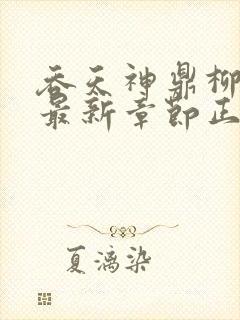 吞天神鼎柳
最新章节正
夏漓染